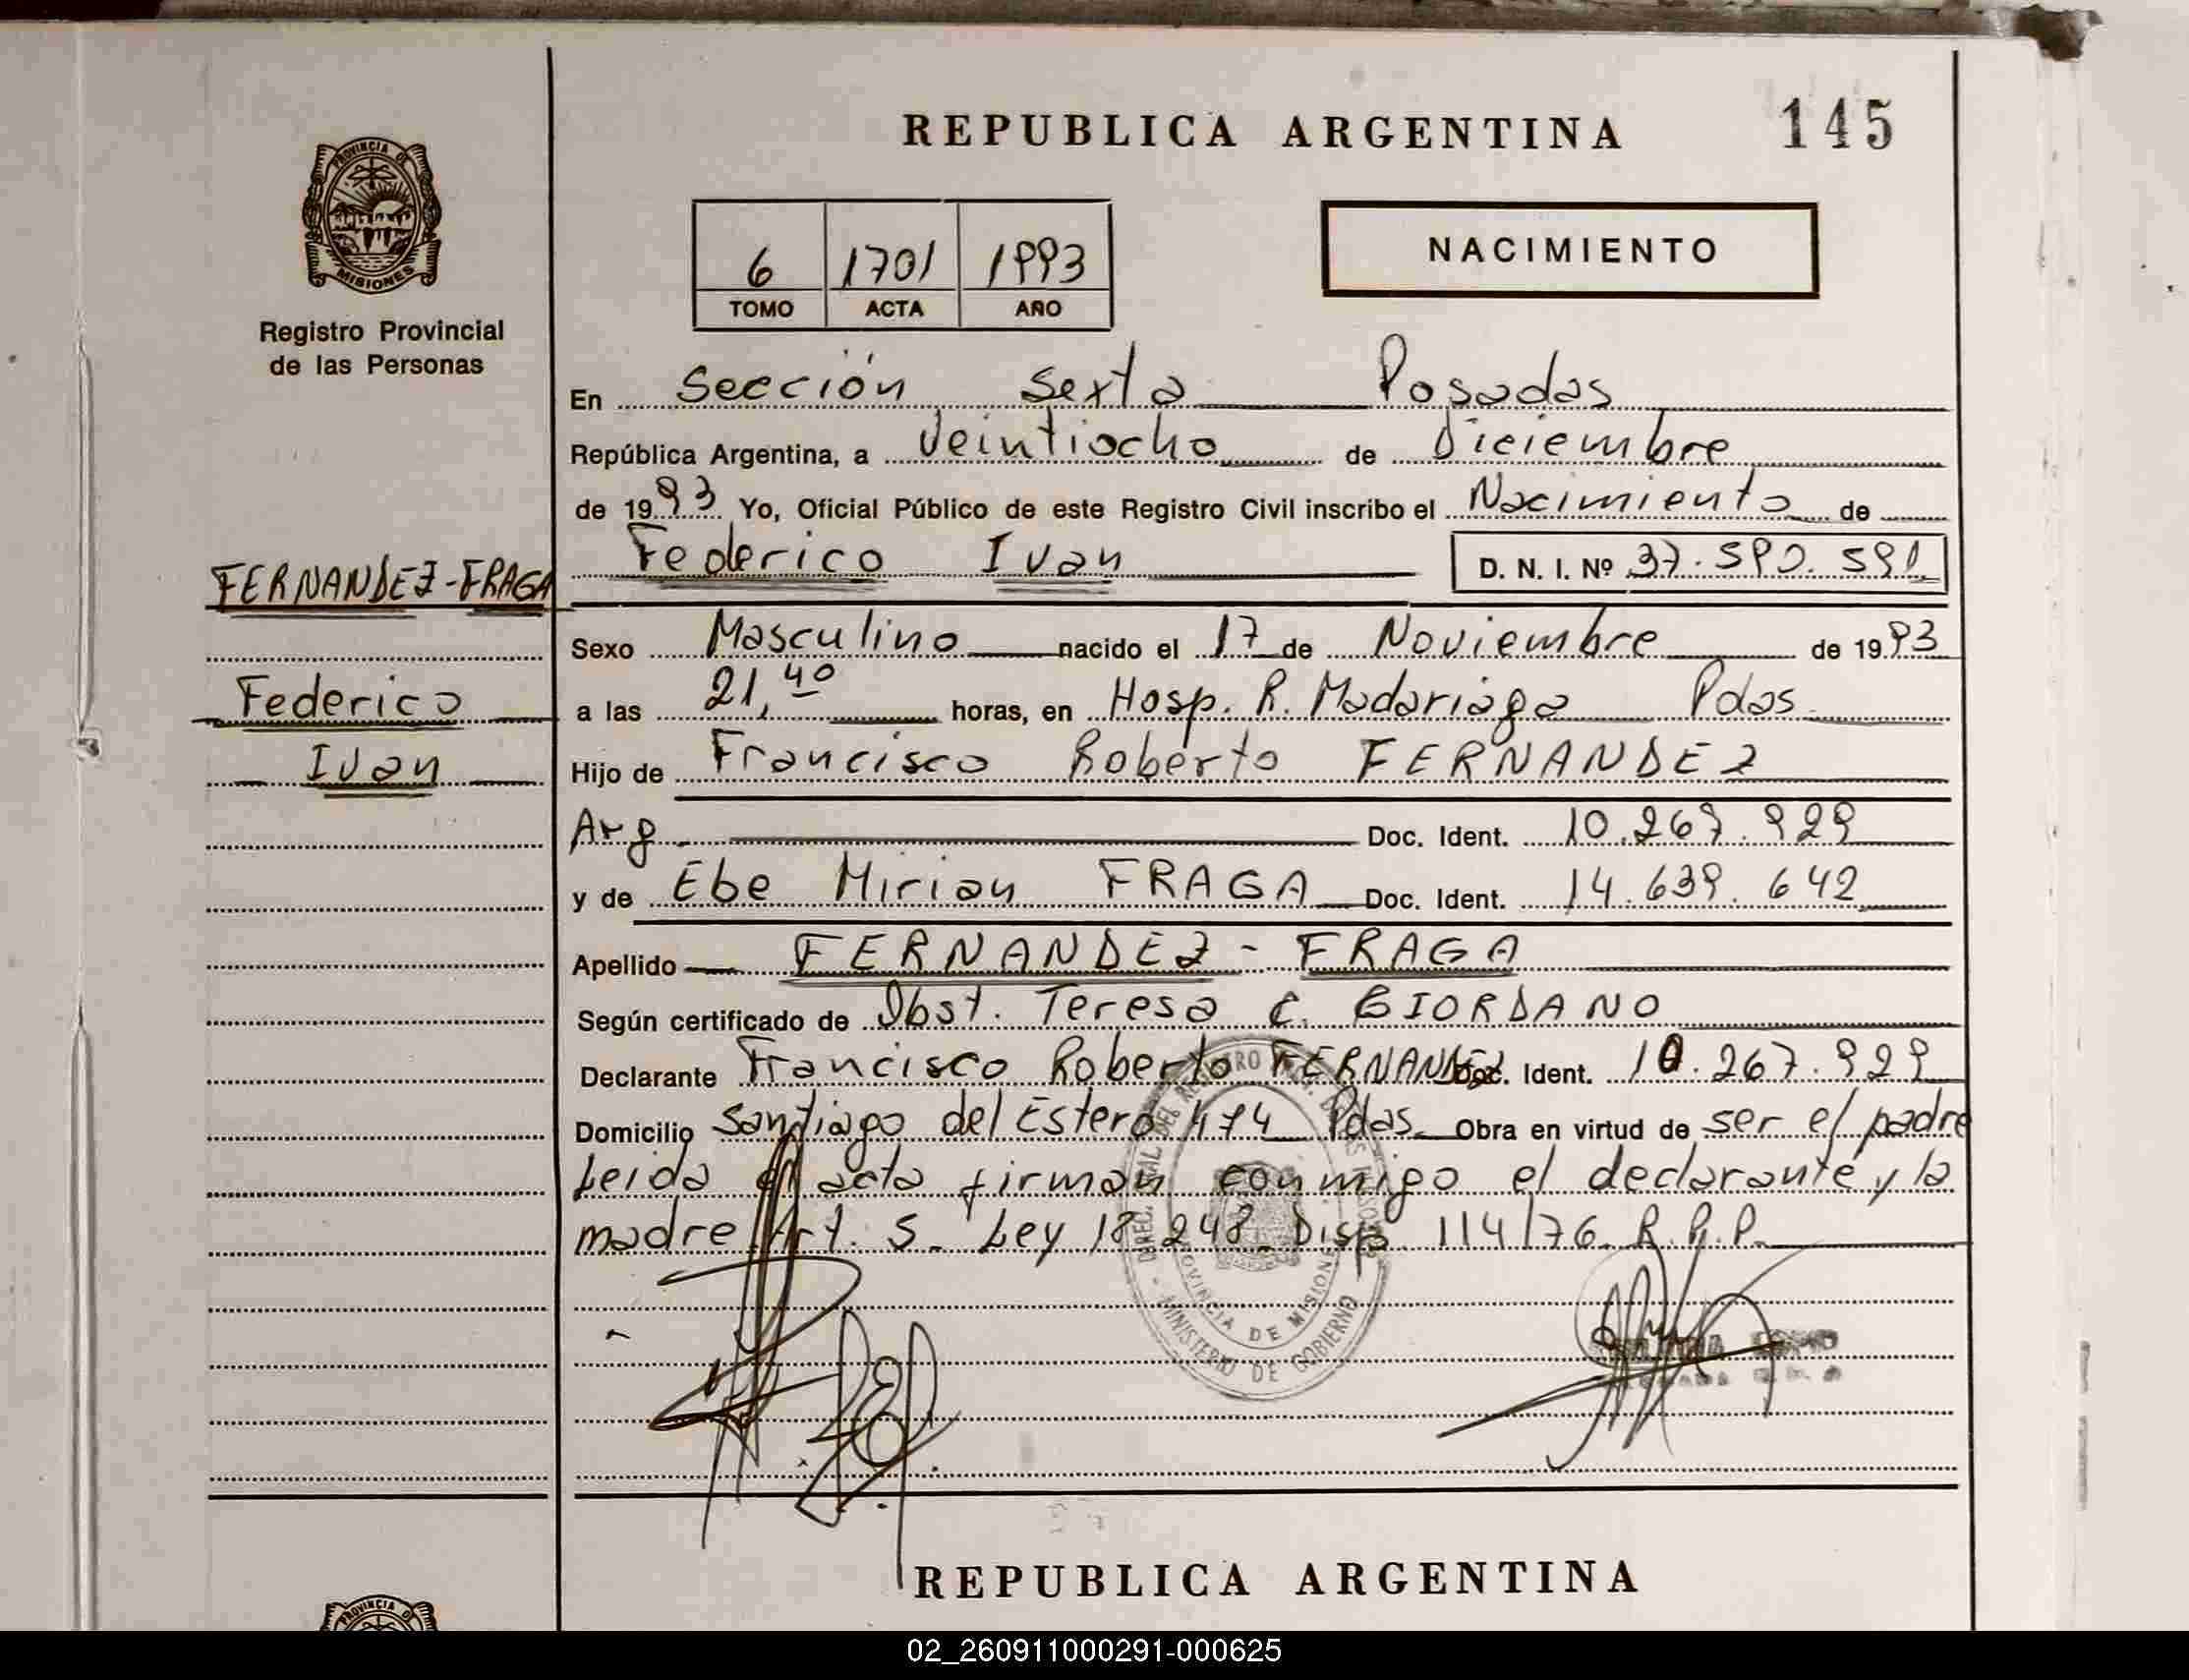 REPUBLICA ARGENTINA 145
PROVINCIA DE
MISIONES
Registro Provincial
de las Personas
6 1701 1993
TOMO ACTA AÑO
NACIMIENTO
En Sección Sexta Posadas
República Argentina, a Veintiocho de Diciembre
de 1993 Yo, Oficial Público de este Registro Civil inscribo el Nacimiento de
Federico Ivan D. N. I. Nº 37.590.591
FERNANDEZ-FRAGA
Federico
Ivan
Sexo Masculino nacido el 17 de Noviembre de 1993
a las 21,40 horas, en Hosp. R. Madariaga Pdas
Hijo de Francisco Roberto FERNANDEZ
Arg. Doc. Ident. 10.267.929
y de Ebe Mirian FRAGA Doc. Ident. 14.639.642
Apellido FERNANDEZ - FRAGA
Según certificado de Obst. Teresa C. GIORDANO
Declarante Francisco Roberto FERNANDEZ Doc. Ident. 10.267.929
Domicilio Santiago del Estero 474 Pdas. Obra en virtud de ser el padre
Leida el acta firman conmigo el declarante y la
madre Art. 5. Ley 18.248. Disp. 114/76. R.P.P.
PROVINCIA DE MISIONES
MINISTERIO DE GOBIERNO
REPUBLICA ARGENTINA
PROVINCIA DE
02_260911000291-000625